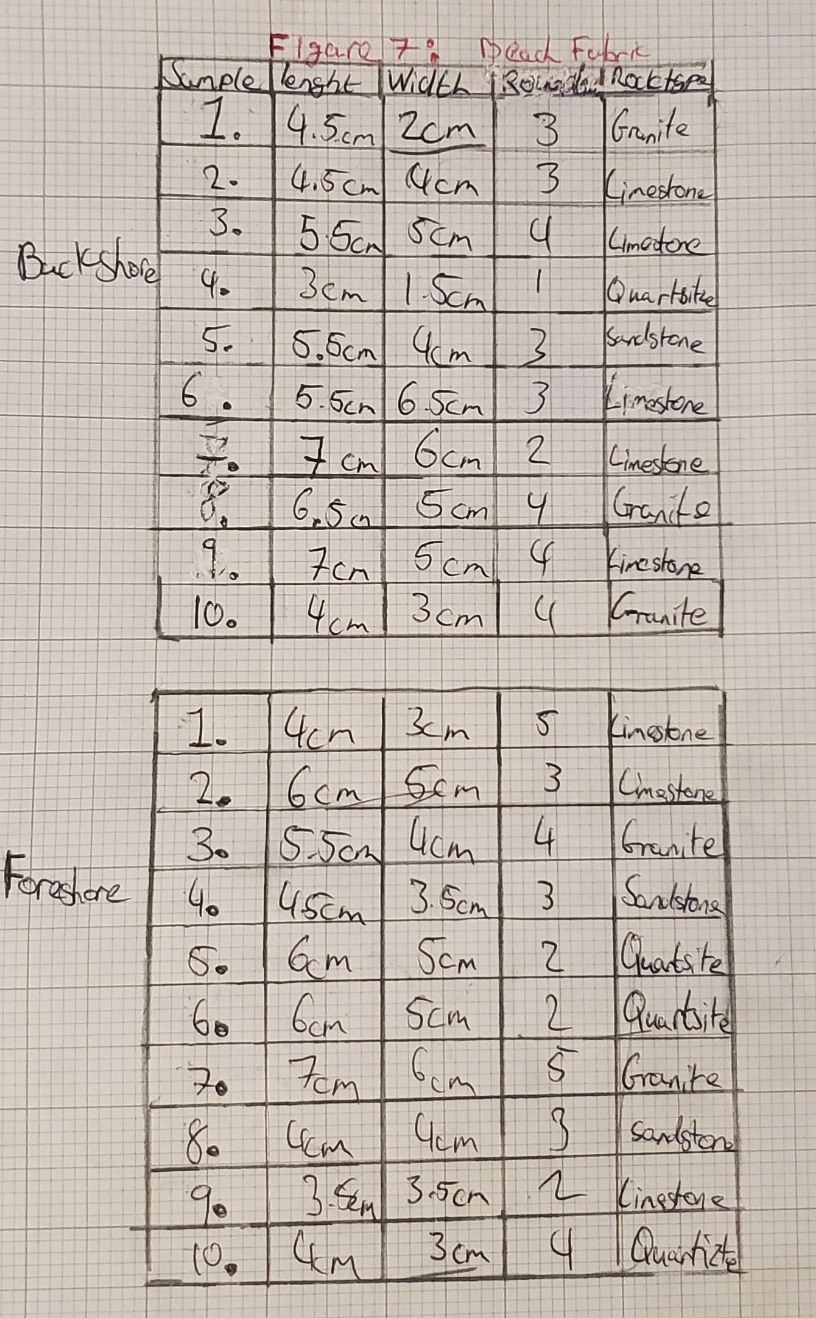 Figure 7: Beach Fabric
Sample lenght Width Rocktype
1. 4.5cm 2cm 3 Granite
2. 4.5cm 4cm 3 Limestone
3. 5.5cm 5cm 4 Limestone
Backshore
4. 3cm 1.5cm 1 Quartsite
5. 5.5cm 4cm 3 Sandstone
6. 5.5cm 6.5cm 3 Limestone
7. 7cm 6cm 2 Limestone
8. 6.5cm 5cm 4 Granite
9. 7cm 5cm 4 Limestone
10. 4cm 3cm 4 Granite
1. 4cm 3cm 5 Limestone
2. 6cm 5cm 3 Limestone
3. 5.5cm 4cm 4 Granite
Foreshore
4. 4.5cm 3.5cm 3 Sandstone
5. 6cm 5cm 2 Quatsite
6. 6cm 5cm 2 Quartsite
7. 7cm 6cm 5 Granite
8. 4cm 4cm 3 Sandstone
9. 3.5cm 3.5cm 2 Limestone
10. 4cm 3cm 4 Quartizte